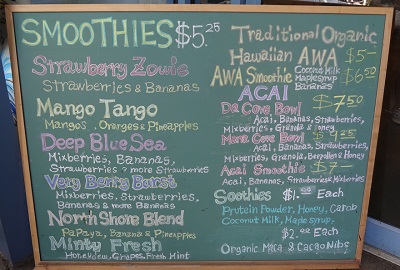 SMOOTHIES $5.25
Strawberry Zowie
Strawberries & Bananas
Mango Tango
Mangos, Oranges & Pineapples
Deep Blue Sea
Mixberries, Bananas,
Strawberries & more Strawberries
Very Berry Burst
Mixberries, Strawberries,
Bananas & more Bananas
North Shore Blend
Papaya, Banana & Pineapples
Minty Fresh
Honeydew, Grapes, Fresh Mint
Traditional Organic
Hawaiian AWA $5-
AWA Smoothie Coconut Milk
Maple syrup
Bananas $6.50
ACAI
Da Cove Bowl $7.50
Acai, Bananas, Strawberries,
Mixberries, Granola & Honey
Mana Cove Bowl $9.25
Acai, Bananas, Strawberries,
Mixberries, Granola, Beepollen & Honey
Acai Smoothie $7-
Acai, Bananas, Strawberries, Mixberries
Soothies $1.00 Each
Protein Powder, Honey, Carob
Coconut Milk, Maple syrup,
$2.00 Each
Organic Maca & Cacao Nibs